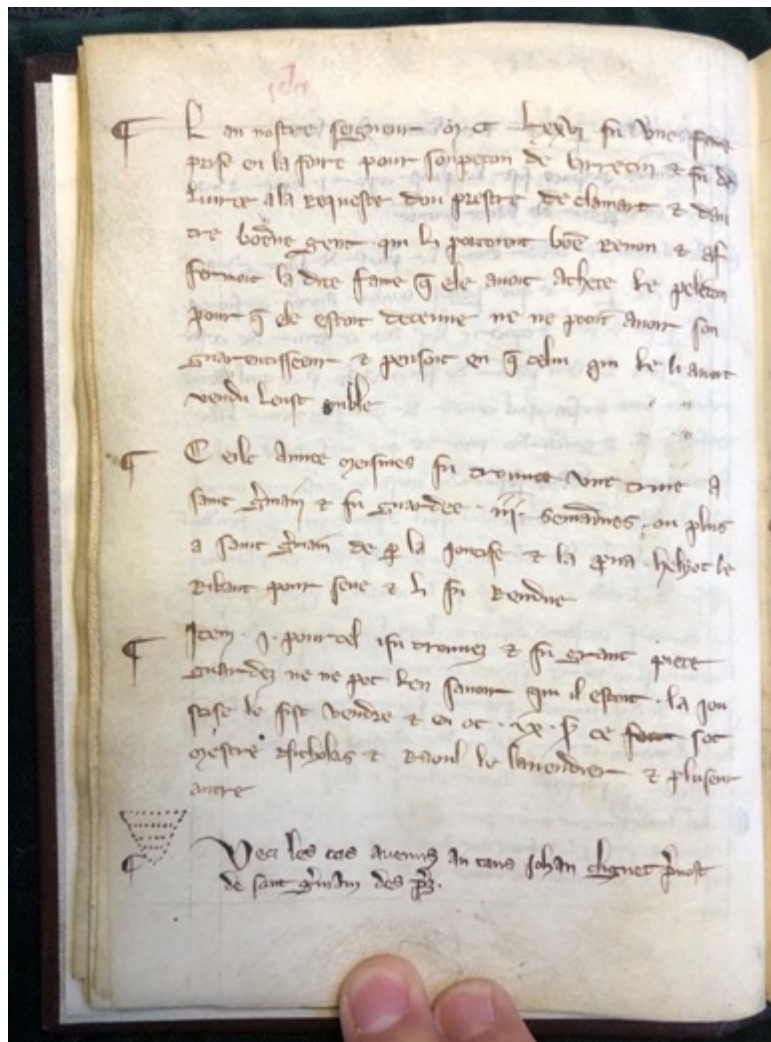 ¶ L an nostre seigneur m. cc. lxxvi fu une fame
prise en la foire pour soupecon de larrecin & fu de
livree a la requeste dou prestre de clamart & dau
tre boene gent qui li portoient boē renon & af
fermoit la dite fame q̄ ele avoit achete le peliton
pour q̄ ele estoit detenue ne ne pooit avoir son
guarentisseeur & pensoit en q̄ celui qui le li avoit
vendu leust emble
¶ C ele annee meismes fu trouvee une truie a
saint ḡmain & fu guardee . iii . semainnes . ou plus
a saint ḡmain de p̲ la joutise & la p̲va . helyot le
ribaut pour seue & li fu rendue
¶ Item . j . pourcel ifu trouvez & fu grant piece
guardez ne ne pot len savoir qui il estoit . la jou
stise le fist vendre & en ot . xx . s̄ ce sot
mestre nicholas & raoul le lavendier & pluseur
autre
¶ Veci les cas avenuz au tans johan clignet p̄vost
de saint ḡmain des p̄z .